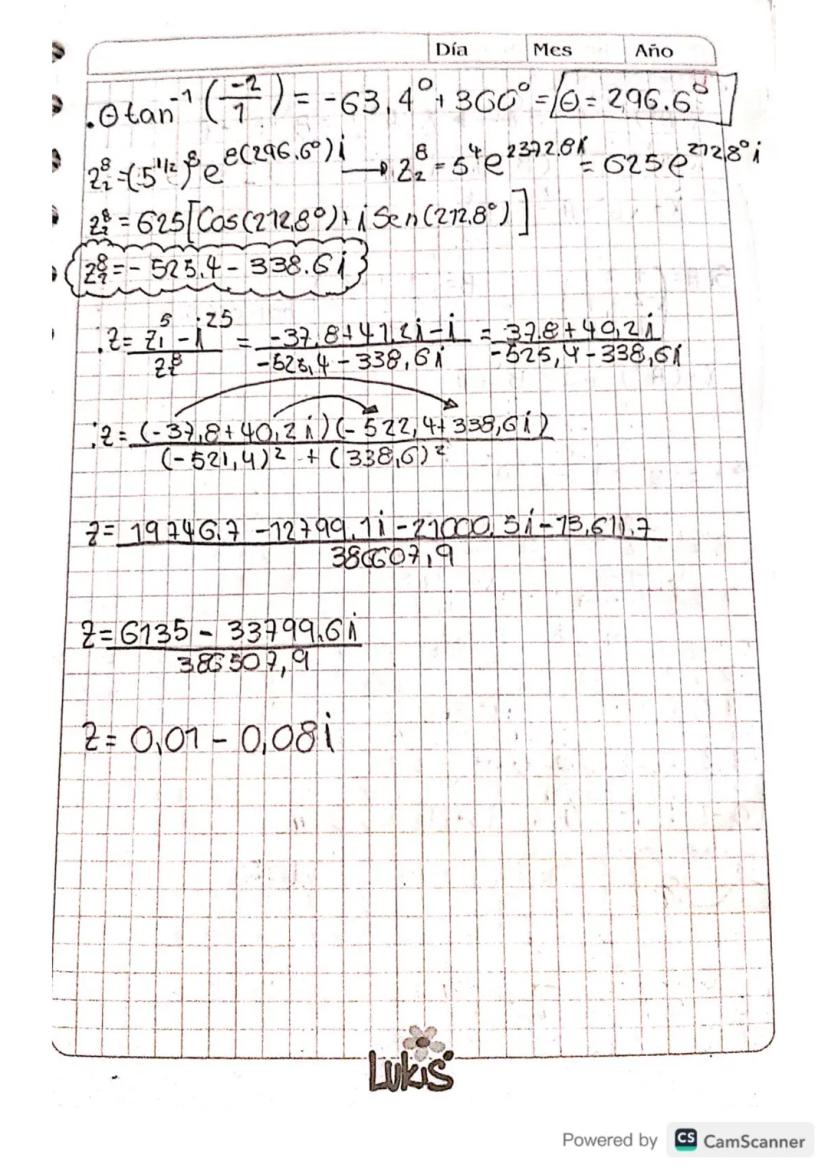 Día Mes Año
.θ tan⁻¹ (-2/1) = -63,4° + 360° = θ = 296.6°
z₂⁸ = (5^1/2)⁸ e^8(296.6°)i → z₂⁸ = 5⁴ e^2372.8i = 625 e^212,8° i
z₂⁸ = 625 [Cos(212,8°) + i Sen(212.8°)]
z₂⁸ = - 525.4 - 338.6 i
.z = z₁⁵ - i²⁵ / z₂⁸ = -37,8 + 41,2 i - i / -525,4 - 338,6 i = 37.8 + 40,2 i / -525,4 - 338,6 i
:z = (-37,8 + 40,2 i) (-522,4 + 338,6 i) / (-521,4)² + (338,6)²
z = 19746.7 - 12799,1 i - 21000,5 i - 13,611.7 / 386607,9
z = 6135 - 33799,6 i / 386507,9
z = 0,01 - 0,08 i
Lukis
Powered by CS CamScanner